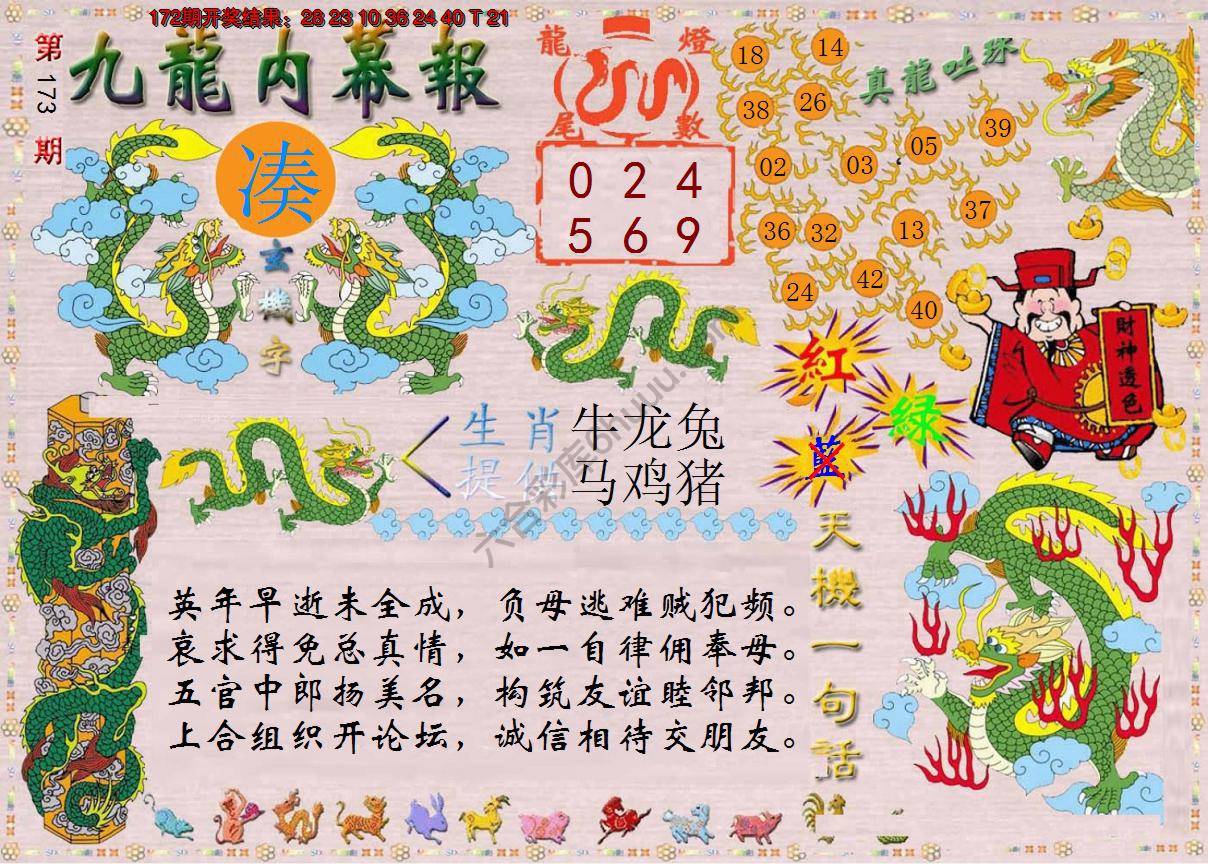 172期开奖结果：28 23 10 36 24 40 T 21
第173期
九龍内幕報
凑
玄機字
龍燈
尾數
0 2 4
5 6 9
真龍吐珠
18
14
38
26
02
03
05
39
36
32
13
37
24
42
40
財神透色
紅
綠
藍
生肖 牛龙兔
提供 马鸡猪
六合彩库
天機一句話
英年早逝未全成，负母逃难贼犯频。
哀求得免总真情，如一自律佣奉母。
五官中郎扬美名，构筑友谊睦邻邦。
上合组织开论坛，诚信相待交朋友。